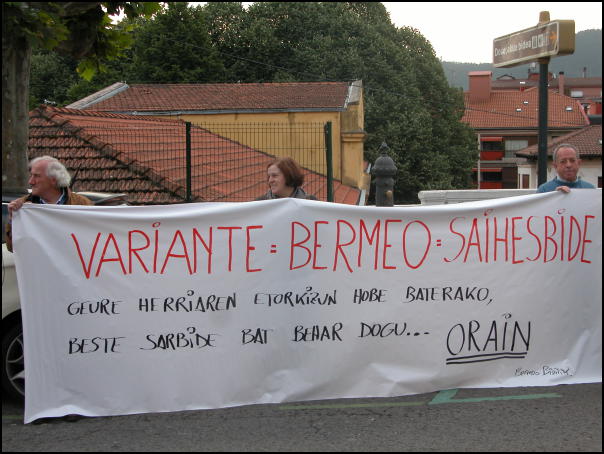 VARIANTE = BERMEO = SAIHESBIDE
GEURE HERRIAREN ETORKIZUN HOBE BATERAKO,
BESTE SARBIDE BAT BEHAR DOGU... ORAIN
Bermeo